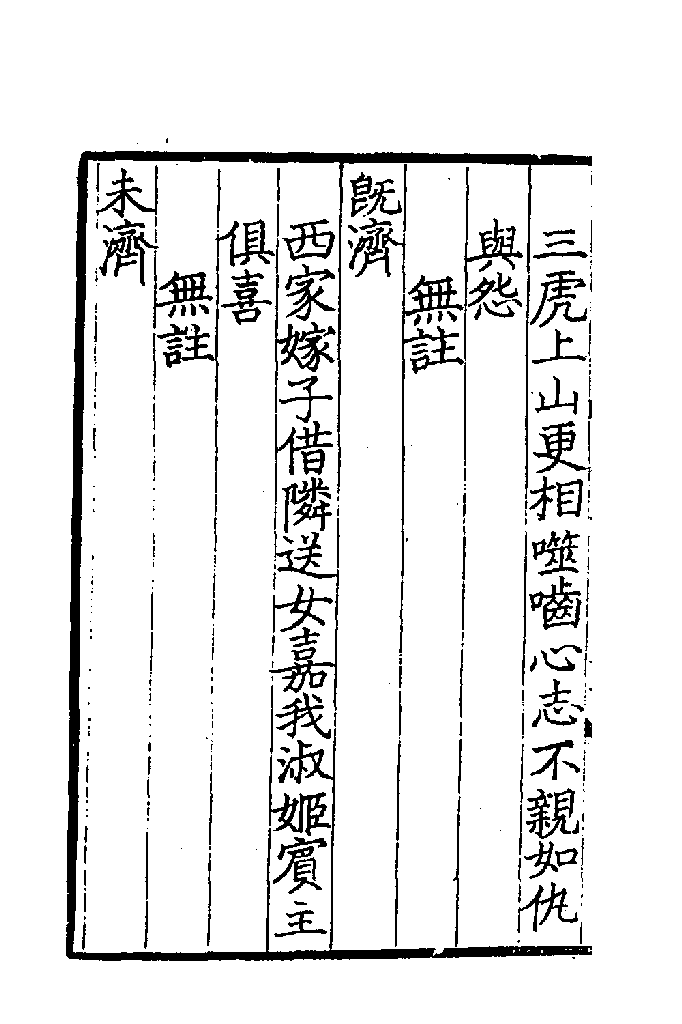 三虎上山更相噬嚙心志不親如仇
與怨
無註
旣濟
西家嫁子借隣送女嘉我淑姬賓主
俱喜
無註
未濟